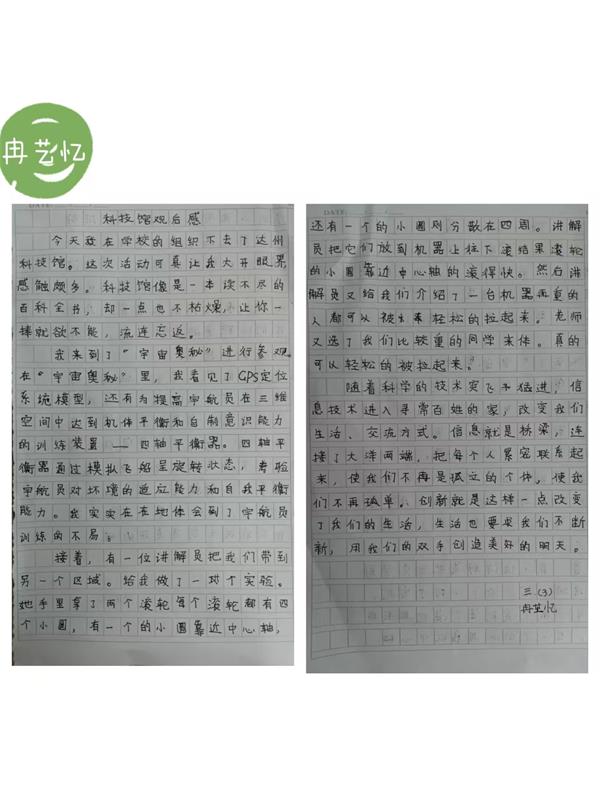 冉艺忆
DATE:
科技馆观后感
今天我在学校的组织下去了达州
科技馆。这次活动可真让我大开眼界
感触颇多。科技馆像是一本读不尽的
百科全书，却一点也不枯燥，让你一
捧就欲不能，流连忘返。
我来到了“宇宙奥秘”进行参观。
在“宇宙奥秘”里，我看见了GPS定位
系统模型，还有为提高宇航员在三维
空间中达到机体平衡和自制意识能力
的训练装置——四轴平衡器。四轴平
衡器通过模拟飞船呈旋转状态，考验
宇航员对坏境的适应能力和自我平衡
能力。我实实在在地体会到了宇航员
训练的不易。
接着，有一位讲解员把我们带到
另一个区域。给我做了一对个实验。
她手里拿了两个滚轮每个滚轮都有四
个小圆，有一个的小圆靠近中心轴，
DATE:
还有一个的小圆则分散在四周。讲解
员把它们放到机器上往下滚结果滚轮
的小圆靠近中心轴的滚得快。然后讲
解员又给我们介绍了一台机器再重的
人都可以被轻松的拉起来。老师
又选了我们比较重的同学来体。真的
可以轻松的被拉起来。
随着科学的技术突飞予猛进，信
息技术进入寻常百姓的家，改变我们
生活、交流方式。信息就是桥梁，连
接了大洋两端，把每个人紧密联系起
来，使我们不再是孤立的个体，使我
们不再孤单。创新就是这样一点改变
了我们的生活，生活也要求我们不断
新，用我们的双手创造美好的明天。
三（3）
冉艺忆